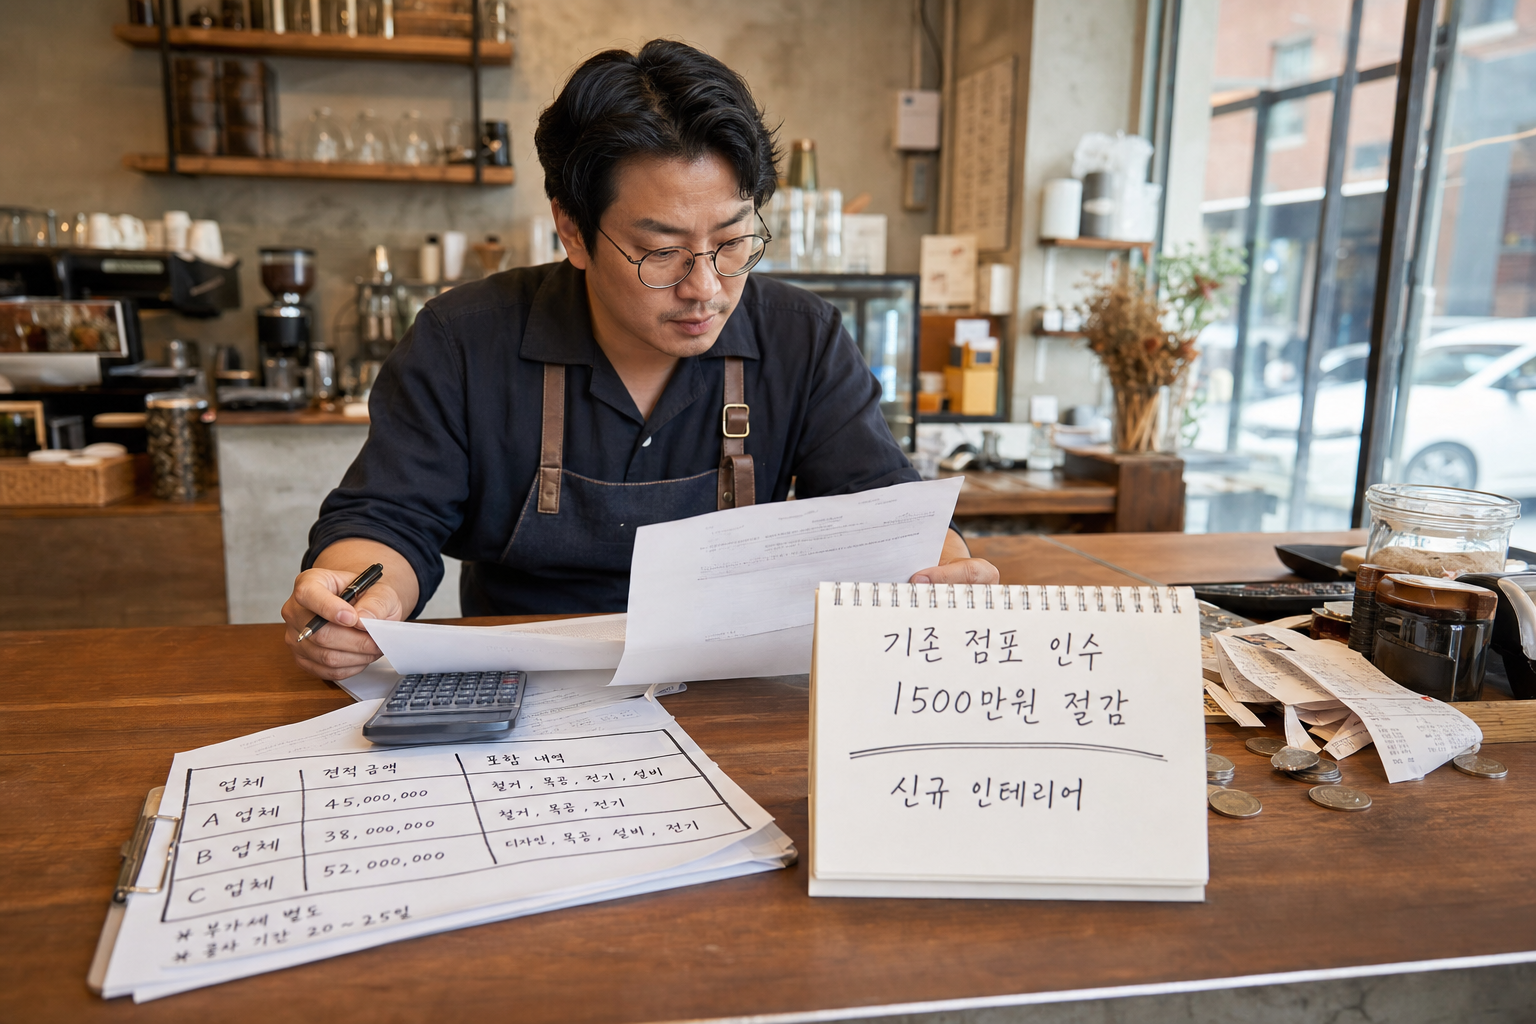 업체 견적 금액 포함 내역
A 업체 45,000,000 철거, 목공, 전기, 설비
B 업체 38,000,000 철거, 목공, 전기
C 업체 52,000,000 디자인, 목공, 설비, 전기
* 부가세 별도
* 공사 기간 20~25일
기존 점포 인수
1500만원 절감
신규 인테리어